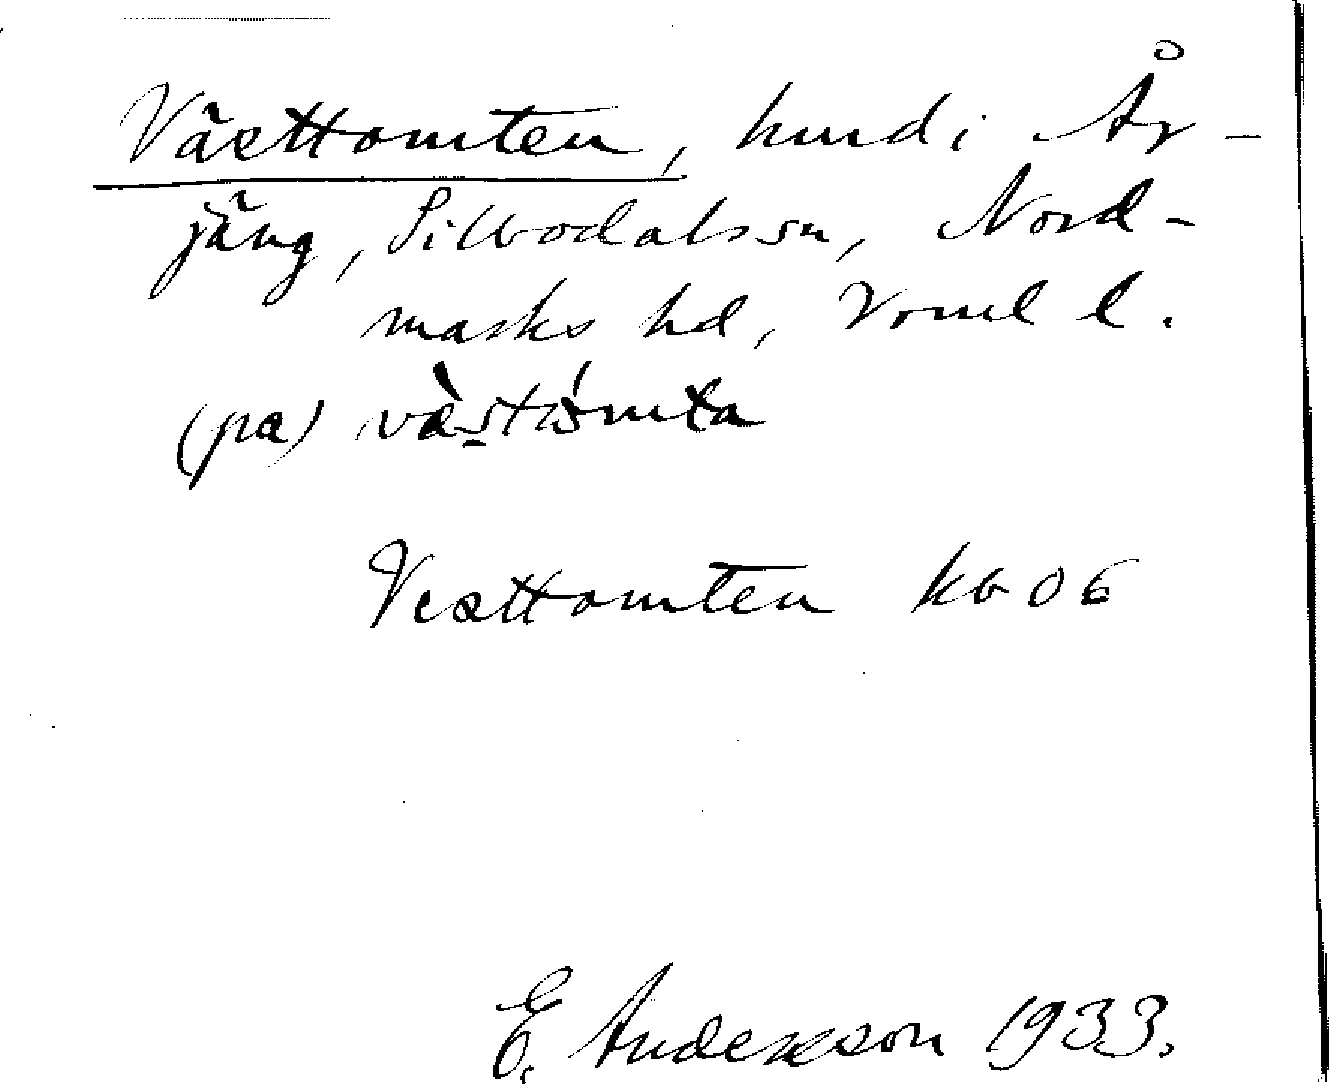 Västtomten, hmd i År-
jäng, Silbodals sn, Nord-
marks hd, Vrml l.
(pa) väståmta
Vesttomten kb 06
E. Andersson 1933.